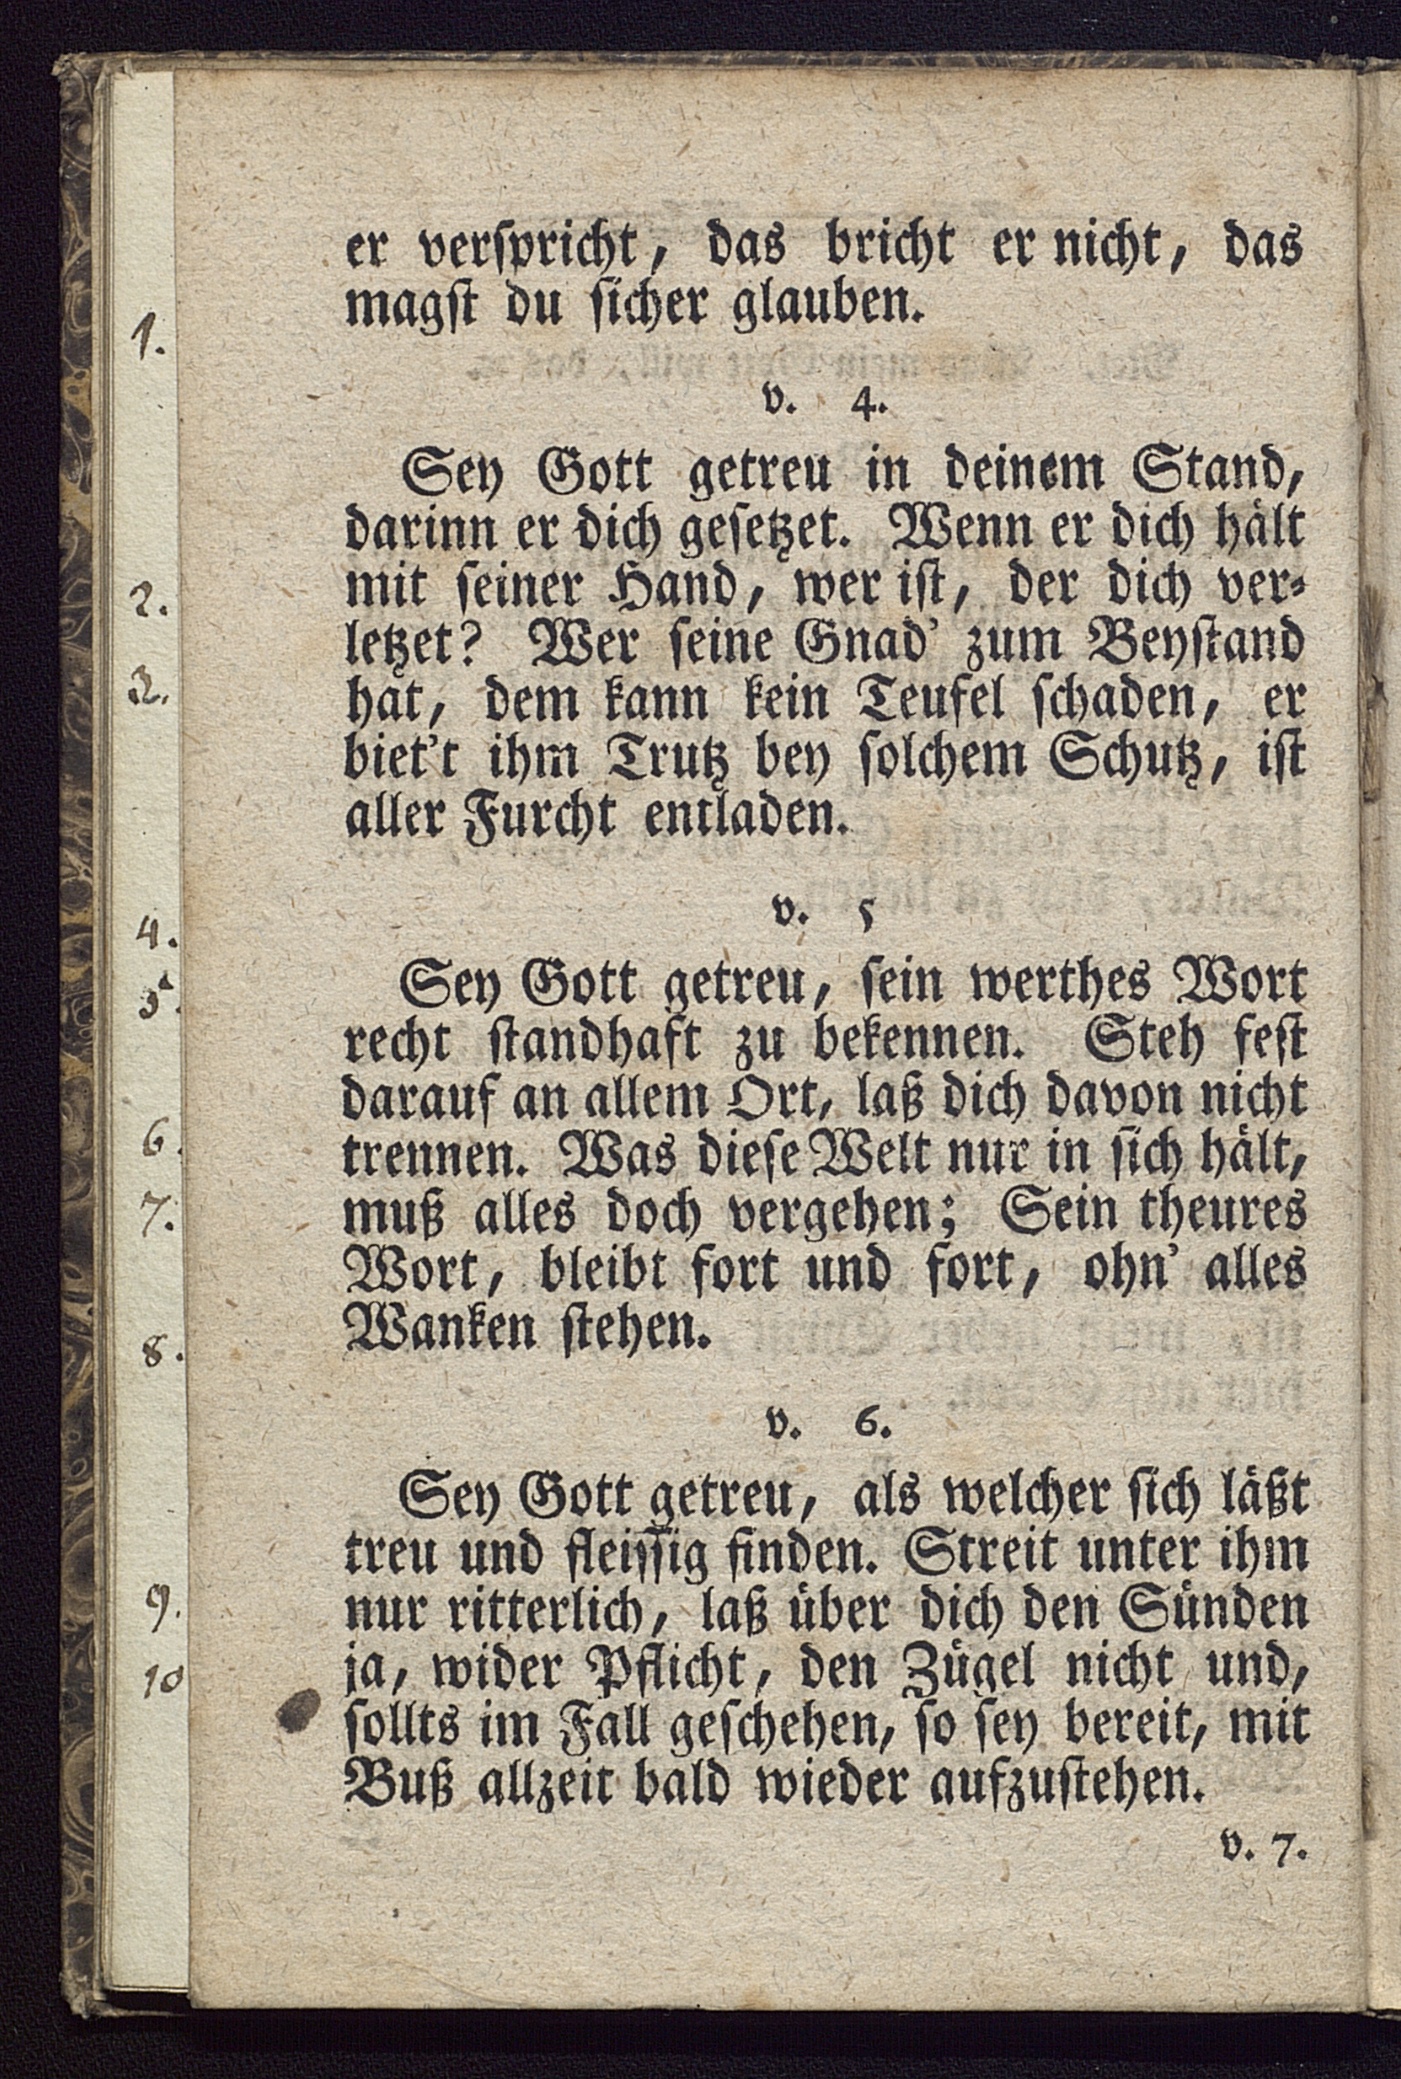 er verſpricht, das bricht er nicht, das
magſt du ſicher glauben.
v. 4.
Sey Gott getreu in deinem Stand,
darinn er dich geſetzet. Wenn er dich hält
mit ſeiner Hand, wer iſt, der dich ver-
letzet? Wer ſeine Gnad' zum Beyſtand
hat, dem kann kein Teufel ſchaden, er
biet't ihm Trutz bey ſolchem Schutz, iſt
aller Furcht entladen.
v. 5
Sey Gott getreu, ſein werthes Wort
recht ſtandhaft zu bekennen. Steh feſt
darauf an allem Ort, laß dich davon nicht
trennen. Was dieſe Welt nur in ſich hält,
muß alles doch vergehen; Sein theures
Wort, bleibt fort und fort, ohn' alles
Wanken ſtehen.
v. 6.
Sey Gott getreu, als welcher ſich läßt
treu und fleiſſig finden. Streit unter ihm
nur ritterlich, laß über dich den Sünden
ja, wider Pflicht, den Zügel nicht und,
ſollts im Fall geſchehen, ſo ſey bereit, mit
Buß allzeit bald wieder aufzuſtehen.
v. 7.
1.
2.
3.
4.
5.
6.
7.
8.
9.
10